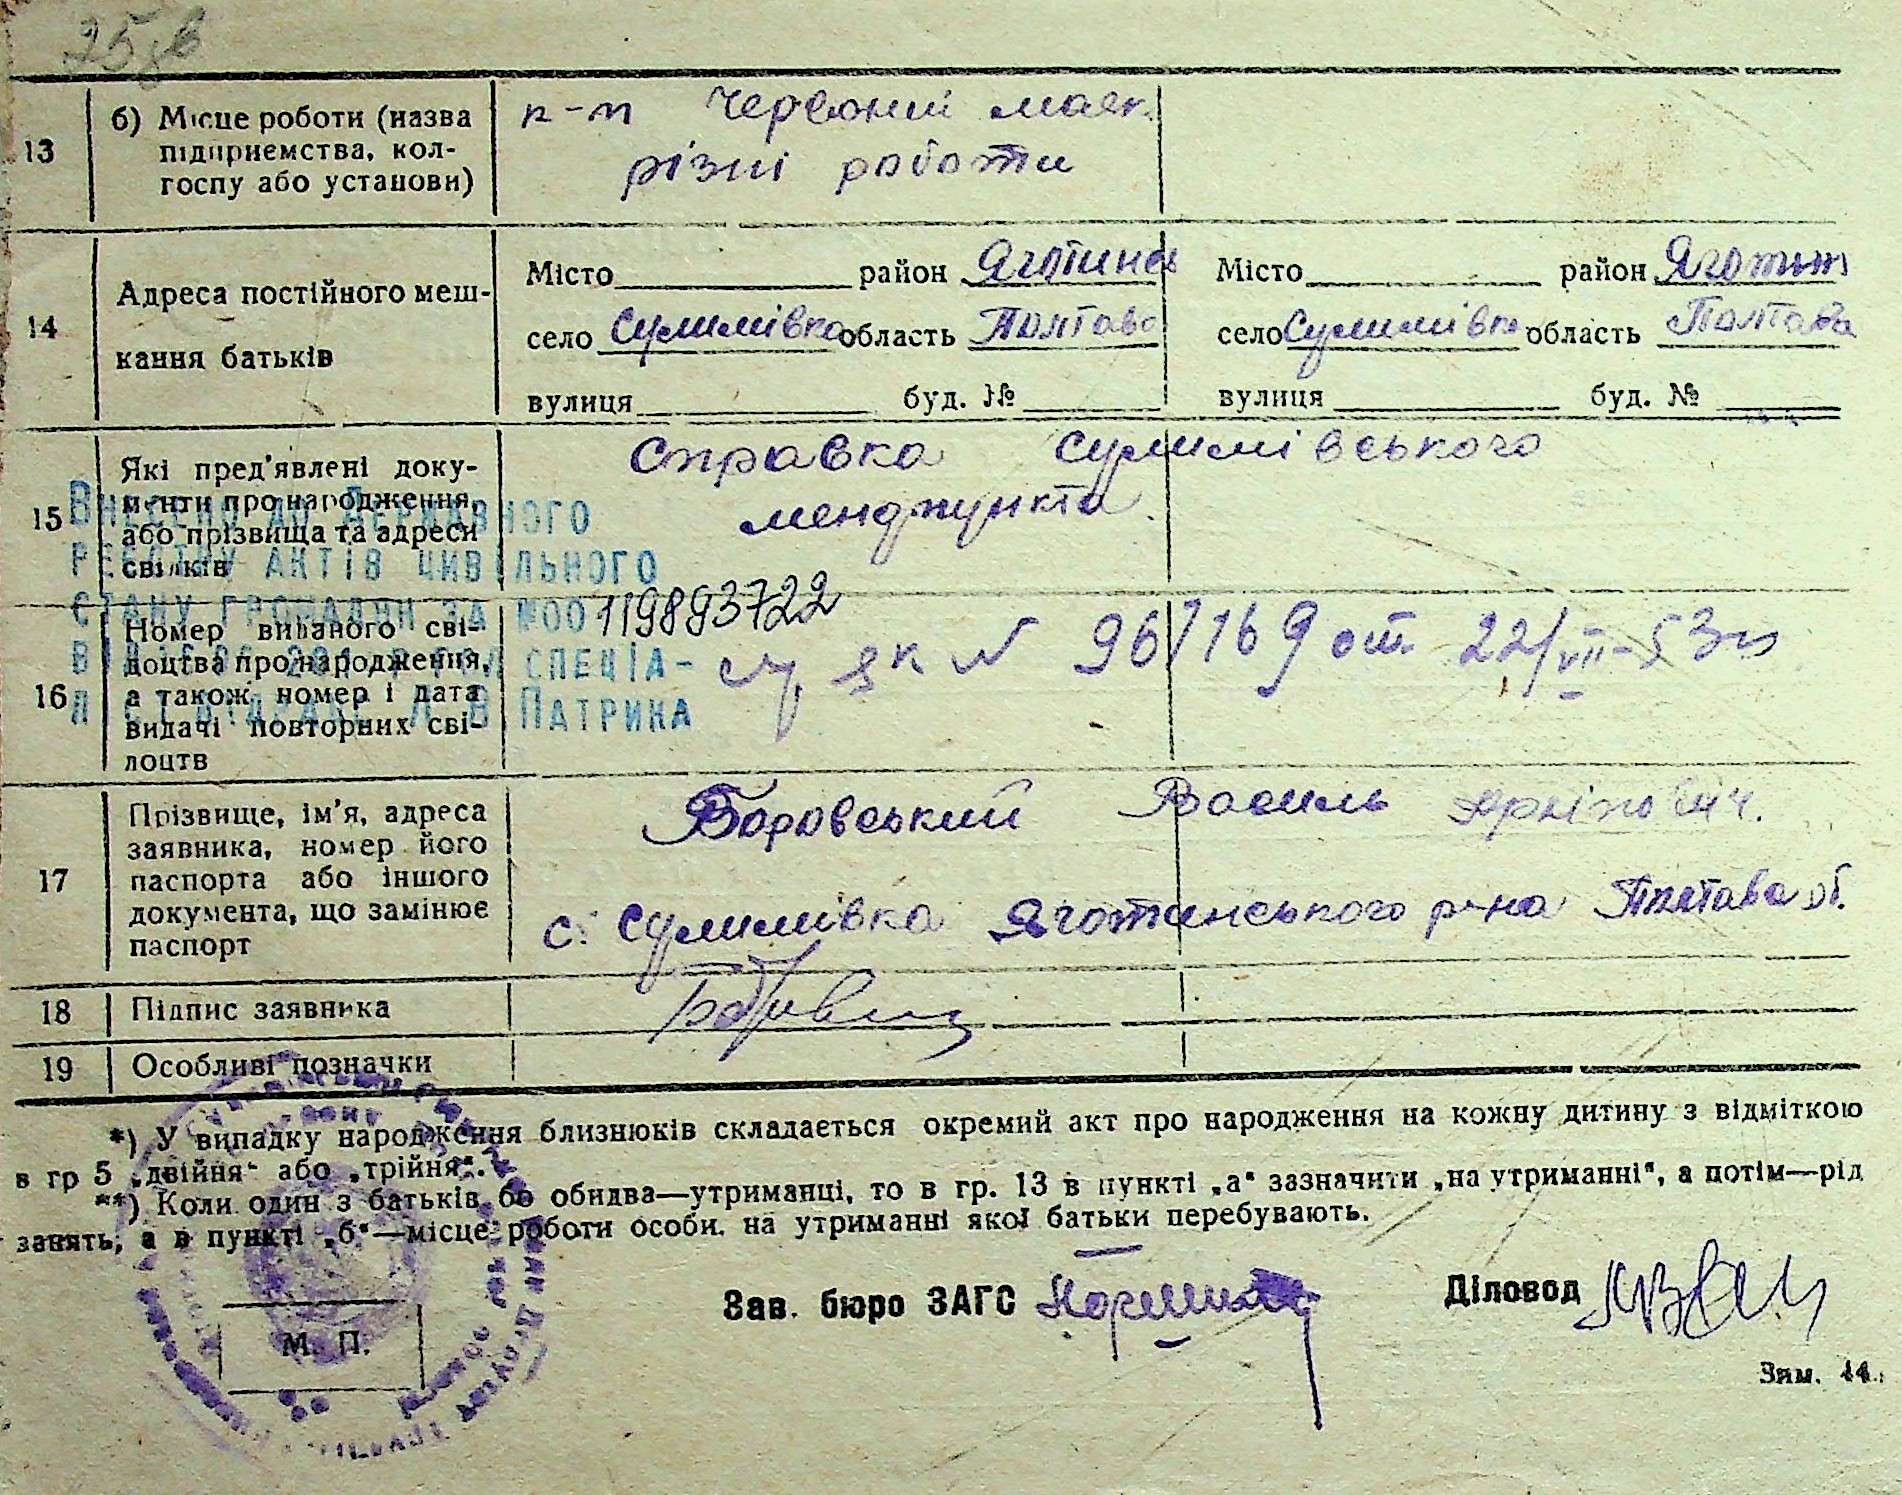 13
б) Місце роботи (назва
підприємства, кол-
госпу або установи)
к-п Червоний маяк.
різні роботи
14
Адреса постійного меш-
кання батьків
Місто район Яготинсь
село Сулимівка область Полтава
вулиця буд. №
Місто район Яготин
село Сулимівка область Полтава
вулиця буд. №
15
Які пред'явлені доку-
менти про народження,
або прізвища та адреси
свідків
Справка Сулимівського
медпункта.
Внесено до Державного
реєстру актів цивільного
стану громадян за №00119893722
спеціа-
ліст Патрика
16
Номер виданого сві-
доцтва про народження,
а також номер і дата
видачі повторних сві-
доцтв
№ 96/169 от. 22/VII-53
17
Прізвище, ім'я, адреса
заявника, номер його
паспорта або іншого
документа, що замінює
паспорт
Боровський Василь
с. Сулимівка Яготинського р-на Полтава об.
18
Підпис заявника
19
Особливі позначки
*) У випадку народження близнюків складається окремий акт про народження на кожну дитину з відміткою
в гр 5 „двійня" або „трійня".
**) Коли один з батьків бо обидва—утриманці, то в гр. 13 в пункті „а" зазначити „на утриманні", а потім—рід
занять, а в пункті „б"—місце роботи особи, на утриманні якої батьки перебувають.
Зав. бюро ЗАГС
Діловод
М. П.
Зам. 44.